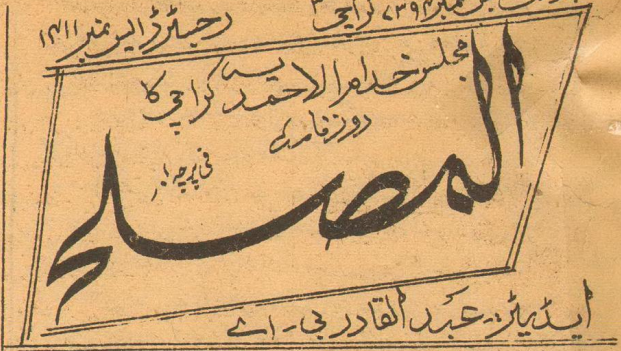 نمبر ۷۳۹۴ کراچی ۳ رجسٹرڈ ایس نمبر ۱۴۱۱
مجلس خدام الاحمدیہ کراچی کا
روزنامہ
المصلح
فی پرچہ ۱ر
ایڈیٹر:- عبدالقادر بی-اے